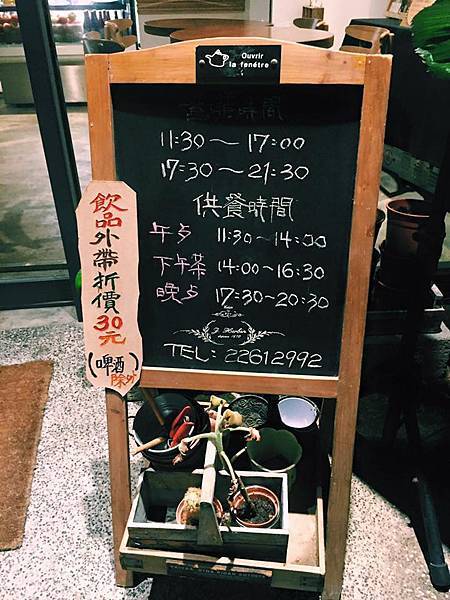 Ouvrir
la fenêtre
營業時間
11:30～17:00
17:30～21:30
供餐時間
午夕 11:30～14:00
下午茶 14:00～16:30
晚夕 17:30～20:30
TEL: 22612992
飲品外帶折價30元
(啤酒除外)